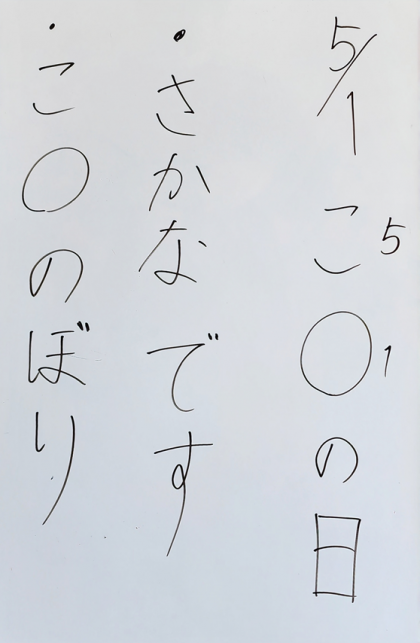 5/1 こ○の日
5
1
・さかなです
・こ○のぼり